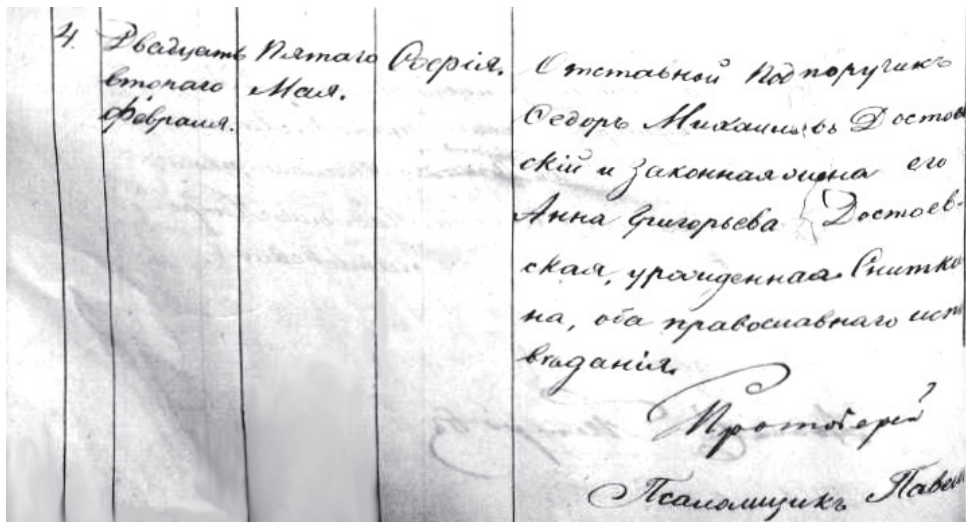 4.
Двадцать
втораго
Февраля.
Пятаго
Мая.
Софія.
Отставной Подпоручикъ
Ѳедоръ Михаиловъ Достоев
скій и законная жена его
Анна Григорьева Достоев-
ская, урожденная Снитки
на, оба православнаго испо
вѣданія.
Протоіерей
Псаломщикъ Павел